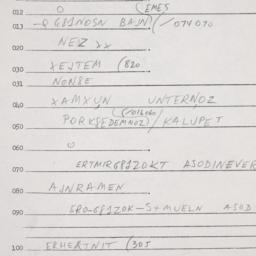 012 O (EMES
013 -Q G81NOSN BAJN) /074070
020 NEZ XX
030 XEJTEM (820
031 NON8E
040 XAMXUN UNTERNOZ
050 PORK8EDEMNOZ)/KALUPET
060 O
070 ERTMIRG81ZOKT ASODINEVER
080 AJNRAMEN
090 GRO-G81ZOK-S+MUELN ASOD
100 ERHERTNIT (305